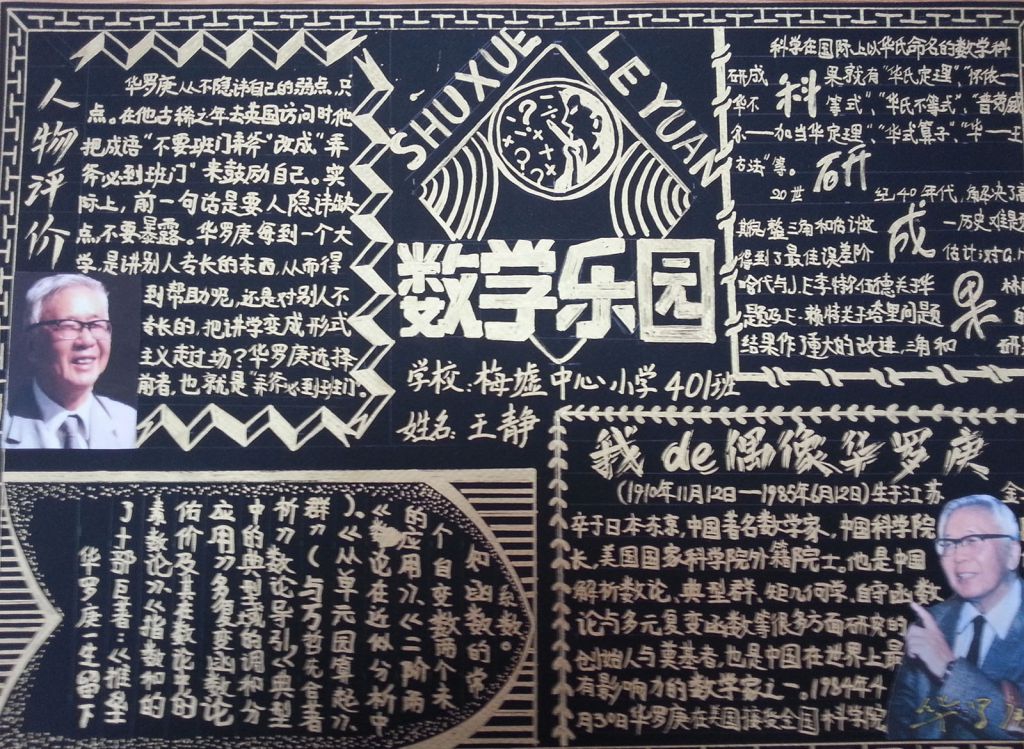 SHUXUE LEYUAN
数学乐园
学校:梅墟中心小学401班
姓名:王静
人物评价
华罗庚从不隐讳自己的弱点,只
点。在他古稀之年去英国访问时他
把成语“不要班门弄斧”改成“弄
斧必到班门”来鼓励自己。实
际上,前一句话是要人隐讳缺
点不要暴露。华罗庚每到一个大
学,是讲别人专长的东西,从而得
到帮助呢,还是对别人不
专长的,把讲学变成形式
主义走过场?华罗庚选择
前者,也就是“弄斧必到班门。
科研成果
科学在国际上以华氏命名的数学科
研成果就有“华氏定理”,“怀依—
华不等式”,“华氏不等式”,“普劳威
尔—加当华定理”,“华式算子”,“华—王
方法”等。
20世纪40年代,解决了高
斯完整三角和估计这一历史难题
得到了最佳误差阶估计;对G.H
哈代与J.E李特尔伍德关于华林
题及E.赖特关于塔里问题的
结果作了重大的改进,三角和研究
我de偶像华罗庚
(1910年11月12日—1985年6月12日)生于江苏金
卒于日本东京,中国著名数学家,中国科学院
长,美国国家科学院外籍院士。他是中国
解析数论、典型群、矩几何学、自守函数
论与多元复变函数等很多方面研究的
创始人与奠基者,也是中国在世界上最
有影响力的数学家之一。1984年4
月30日华罗庚在美国接受全国科学院
华罗庚一生留下
了十部巨著:《堆垒
素数论》《指数和的
估价及其在数论中的
应用》《多复变函数论
中的典型域的调和分
析》《数论导引》《典型
群》(与万哲先合著
)、《从单元圆算起》、
《数论在近似分析中
的应用》、《二阶两
个自变数两个未
知函数的常
系数。